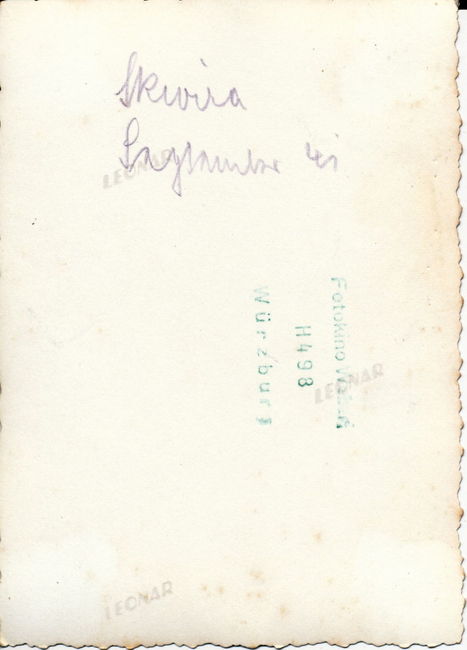 Skwira
September 41
LEONAR
Fotokino
H498
Würzburg
LEONAR
LEONAR